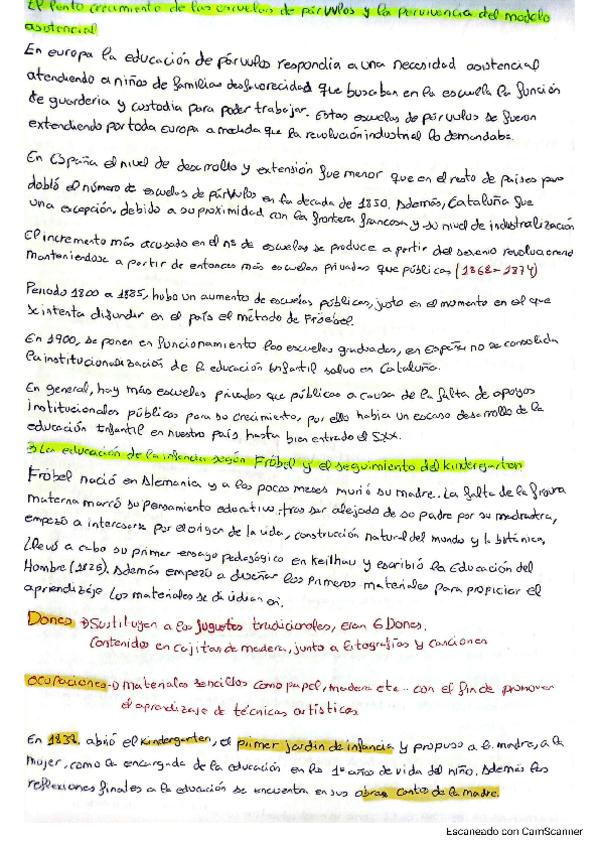 El lento crecimiento de las escuelas de párvulos y la pervivencia del modelo
asistencial
En europa la educación de párvulos respondía a una necesidad asistencial
atendiendo a niños de familias desfavorecidad que buscaban en la escuela la función
de guardería y custodia para poder trabajar. Estas escuelas de párvulos se fueron
extendiendo por toda Europa a medida que la revolución industrial lo demandaba.
En España el nivel de desarrollo y extensión fue menor que en el resto de países pero
dobló el número de escuelas de párvulos en la decada de 1850. Además, Cataluña fue
una excepción, debido a su proximidad con la frontera francesa y su nivel de industralización
El incremento más acusado en el nº de escuelas se produce a partir del sexenio revolucionario
manteniendose a partir de entonces más escuelas privadas que públicas, (1868-1874)
Periodo 1800 a 1885, hubo un aumento de escuelas públicas, justo en el momento en el que
se intenta difundir en el país el método de Fröebel.
En 1900, se ponen en funcionamiento las escuelas graduadas, en España no se consolida
la institucionalización de la educación Infantil salvo en Cataluña.
En general, hay más escuelas privadas que públicas a causa de la falta de apoyos
institucionales públicos para su crecimiento, por ello habia un escaso desarrollo de la
educación Infantil en nuestro país, hasta bien entrado el SXX.
3 La educación de la infancia según Fröbel y el seguimiento del kindergarten
Fröbel nació en Alemania y a los pocos meses murió su madre. La falta de la figura
materna marcó su pensamiento educativo, tras ser alejado de su padre por su madrastra,
empezó a interesarse por el origen de la vida, construcción natural del mundo y la botánica,
Llevó a cabo su primer ensayo pedagógico en Keilhau y escribió la Educación del
Hombre (1826). Además empezó a diseñar los primeros materiales para propiciar el
aprendizaje los materiales se dividian en.
Dones → Sustituyen a los juguetes tradicionales, eran 6 Dones.
Contenidos en cajitas de madera, junto a litografías y canciones
Ocupaciones → Materiales sencillos como papel, madera etc... con el fin de promover
el aprendizaje de técnicas artísticas
En 1837. abrió el kindergarten, el primer jardín de infancia y propuso a la madre, a la
mujer, como la encargada de la educación en los 1º años de vida del niño. Además las
reflexiones finales a la educación se encuentra en sus obras Cantos de la madre.
Escaneado con CamScanner